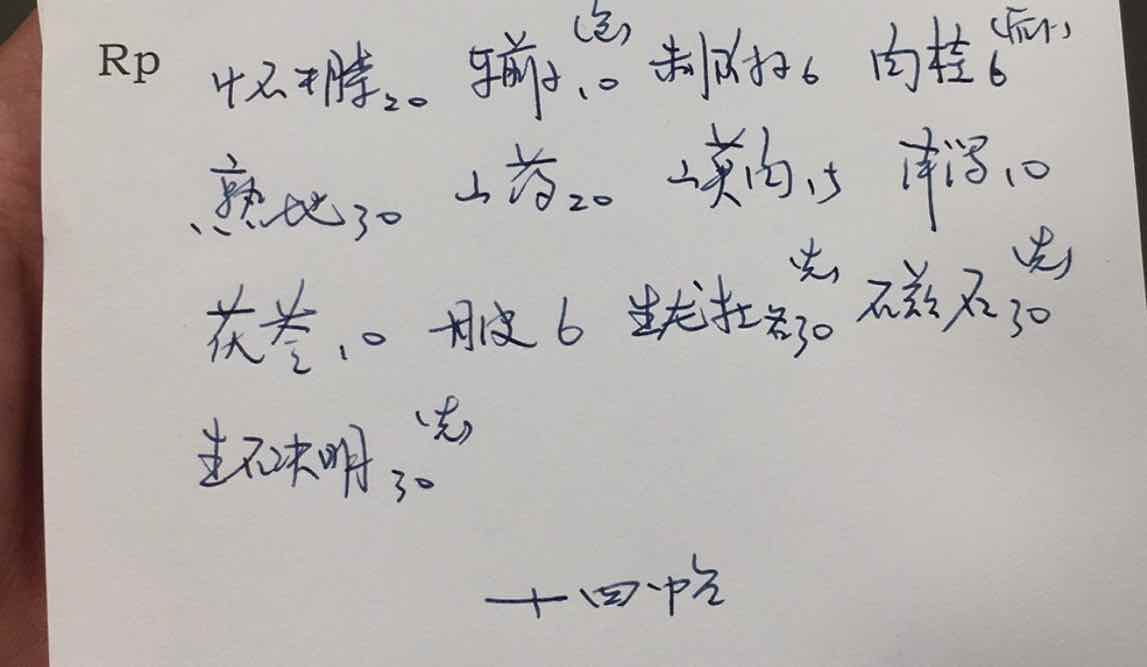 Rp 怀牛膝20 车前子10(包) 制附子6 肉桂6(后下)
熟地30 山药20 山萸肉15 泽泻10
茯苓10 丹皮6 生龙牡各30(先) 石磁石30(先)
生石决明30(先)
十四帖